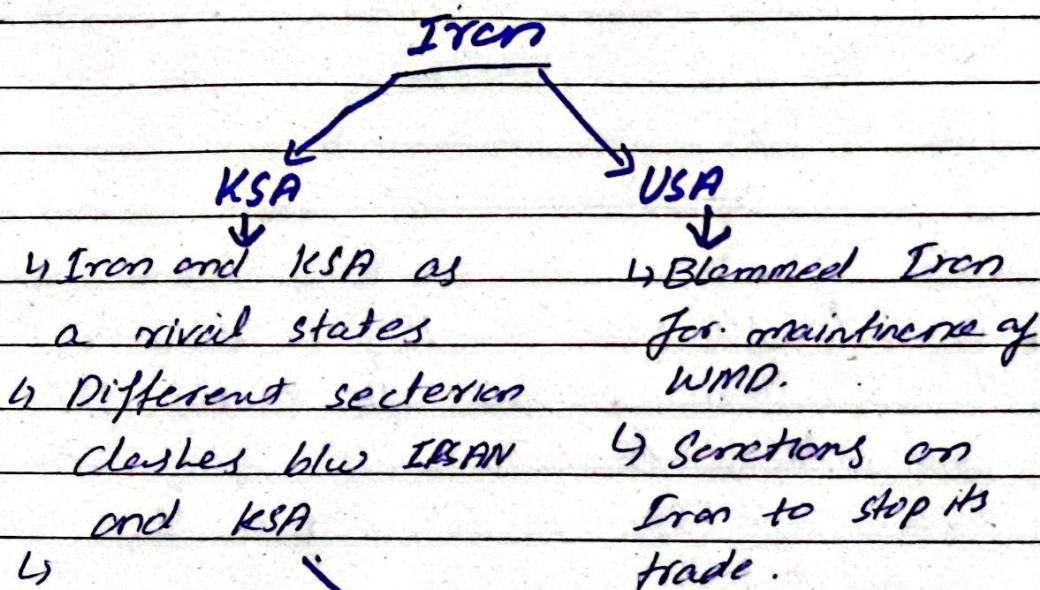 Iran
KSA
USA
↳ Iran and KSA as
a rival states
↳ Different secterian
clashes b/w IRSAN
and KSA
↳
↳ Blammed Iran
for maintinence of
WMD.
↳ Sanctions on
Iran to stop its
trade.